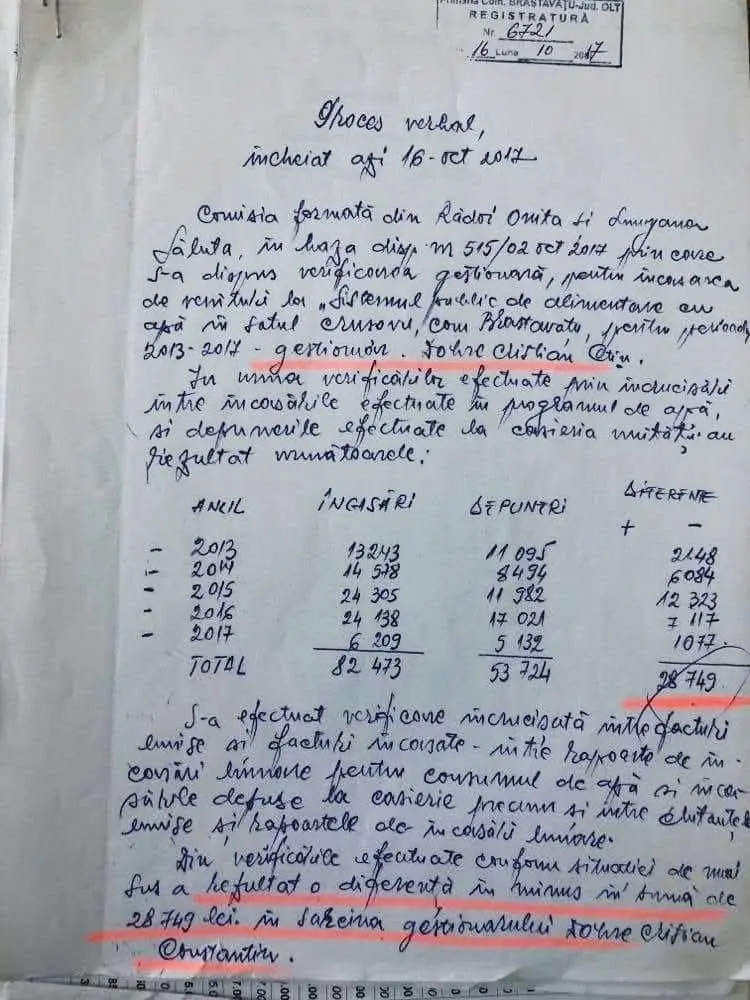 Primăria Com. BRASTAVĂŢU-Jud. OLT
REGISTRATURĂ
Nr. 6721
16 Luna 10 2017
Proces verbal,
incheiat azi 16-oct 2017
Comisia formată din Rădoi Onita si
Săluta, în baza disp. nr 515/02 oct 2017 prin care
s-a dispus verificarea gestionară, pentru incasarea
de venituri la „Sistemul public de alimentare cu
apă în satul Crusovu, com Brastavatu, pentru perioada
2013-2017 - gestionar. Dobre Cristian Ctin.
In urma verificărilor efectuate prin incrucisări
intre incasările efectuate in programul de apă,
si depunerile efectuate la casieria unității au
rezultat urmatoarele:
ANUL ÎNCASĂRI DEPUNERI DIFERENTE
+ -
- 2013 13243 11 095 2148
- 2014 14 578 8494 6084
- 2015 24 305 11 982 12 323
- 2016 24 138 17 021 7 117
- 2017 6 209 5 132 1077
TOTAL 82 473 53 724 28 749
S-a efectuat verificare incrucisată intre facturi
emise si facturi incasate - intre rapoarte de in-
casări lunare pentru consumul de apă si incă-
sările depuse la casierie precum si intre chitanțele
emise si rapoartele de incasări lunare.
Din verificările efectuate conform situatiei de mai
sus a rezultat o diferență in minus in sumă de
28 749 lei. in sarcina gestionarului Dobre Cristian
Constantin.